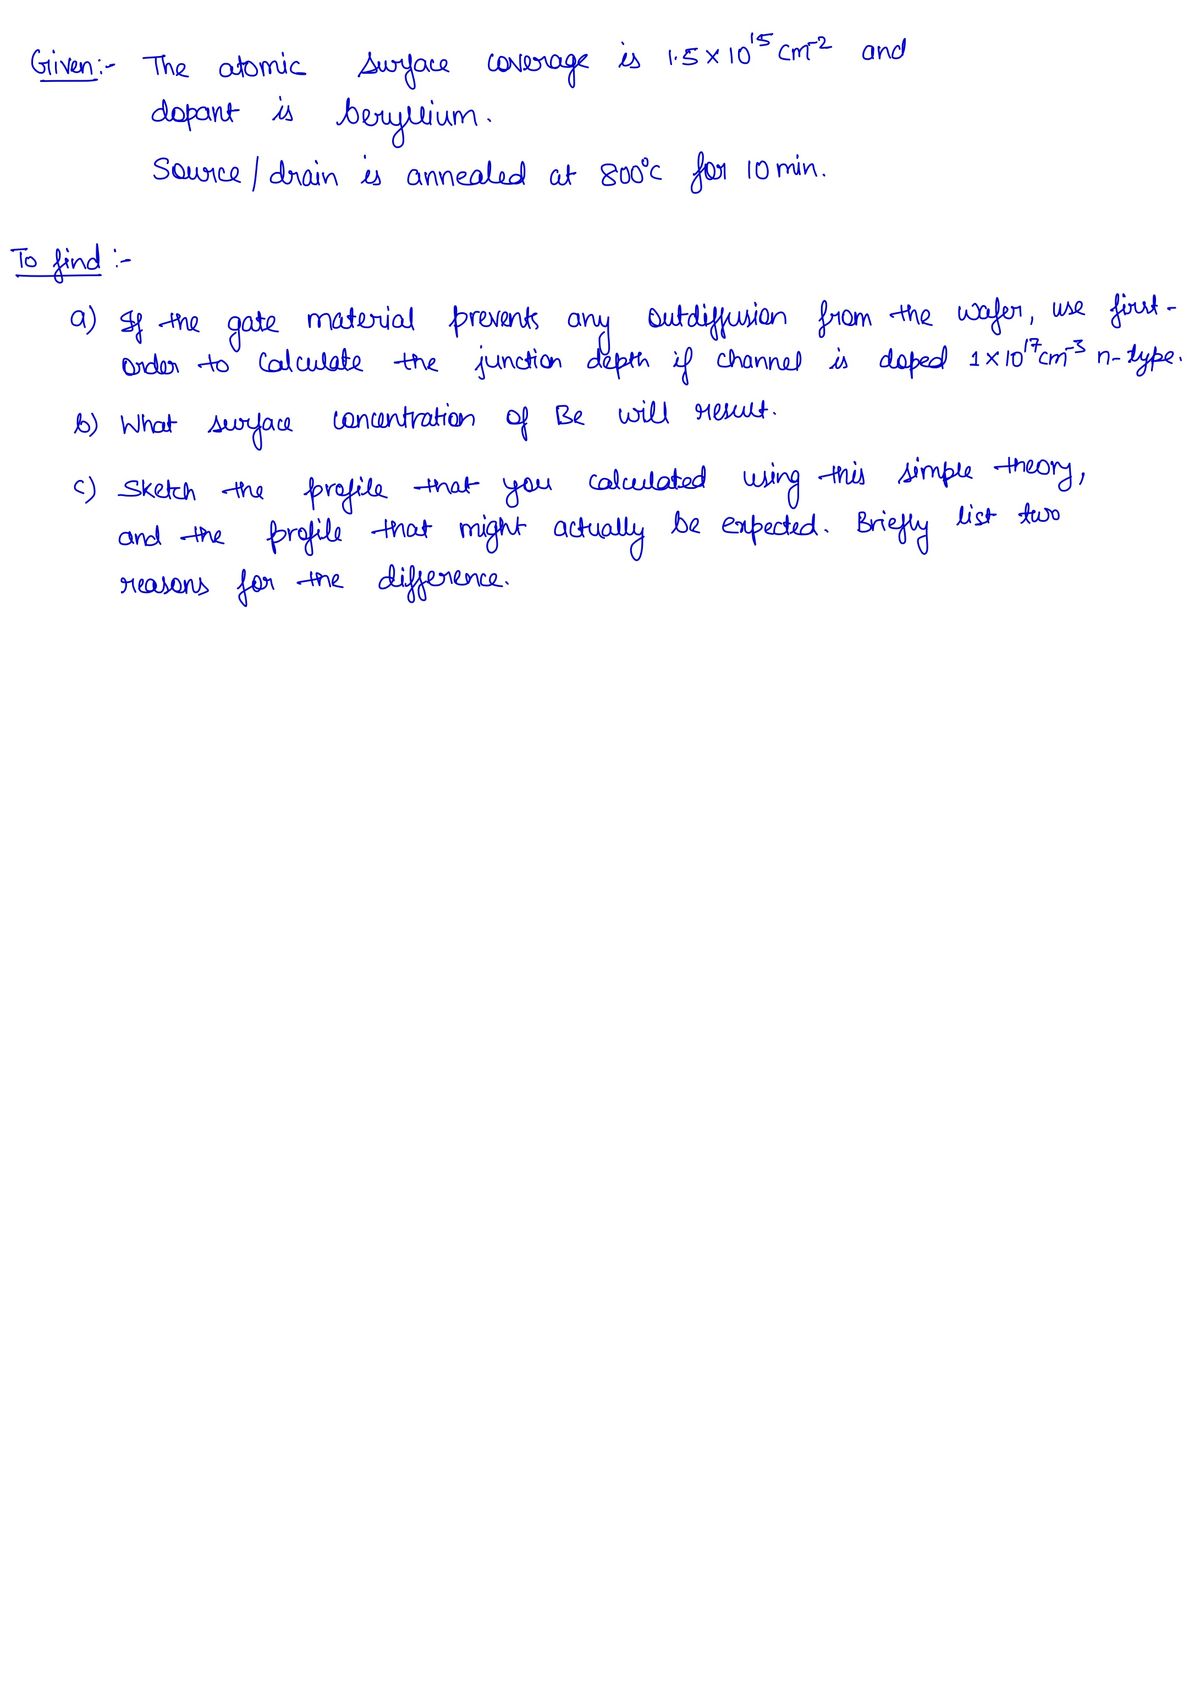 Given:- The atomic surface coverage is 1.5 × 10¹⁵ cm⁻² and
dopant is beryllium.
Source / drain is annealed at 800°C for 10 min.
To find :-
a) If the gate material prevents any outdiffusion from the wafer, use first-
order to calculate the junction depth if channel is doped 1 × 10¹⁷ cm⁻³ n-type.
b) What surface concentration of Be will result.
c) Sketch the profile that you calculated using this simple theory,
and the profile that might actually be expected. Briefly list two
reasons for the difference.